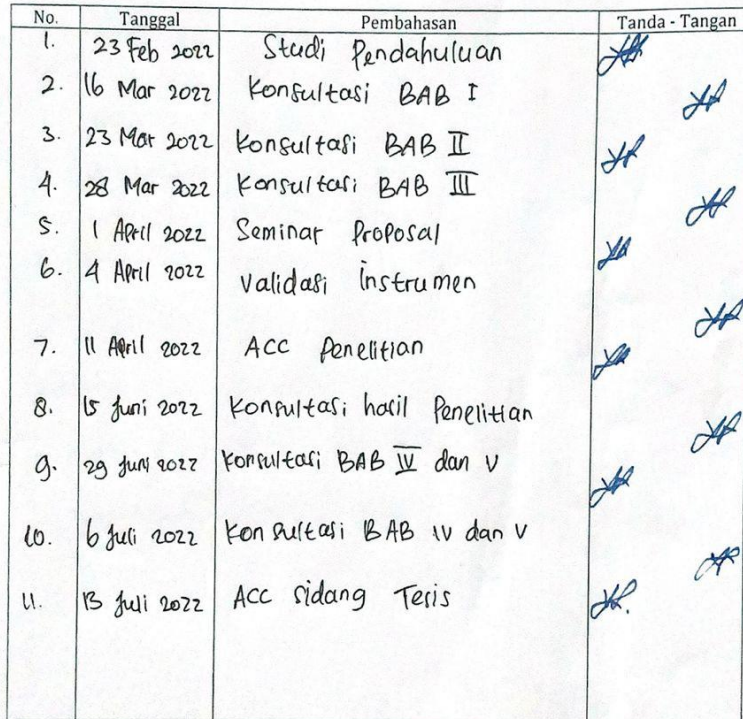 No. Tanggal Pembahasan Tanda - Tangan
1. 23 Feb 2022 Studi Pendahuluan
2. 16 Mar 2022 Konsultasi BAB I
3. 23 Mar 2022 Konsultasi BAB II
4. 28 Mar 2022 Konsultasi BAB III
5. 1 April 2022 Seminar Proposal
6. 4 April 2022 Validasi instrumen
7. 11 April 2022 ACC Penelitian
8. 15 Juni 2022 Konsultasi hasil Penelitian
9. 29 Juni 2022 Konsultasi BAB IV dan V
10. 6 Juli 2022 Konsultasi BAB IV dan V
11. 13 Juli 2022 ACC sidang Tesis